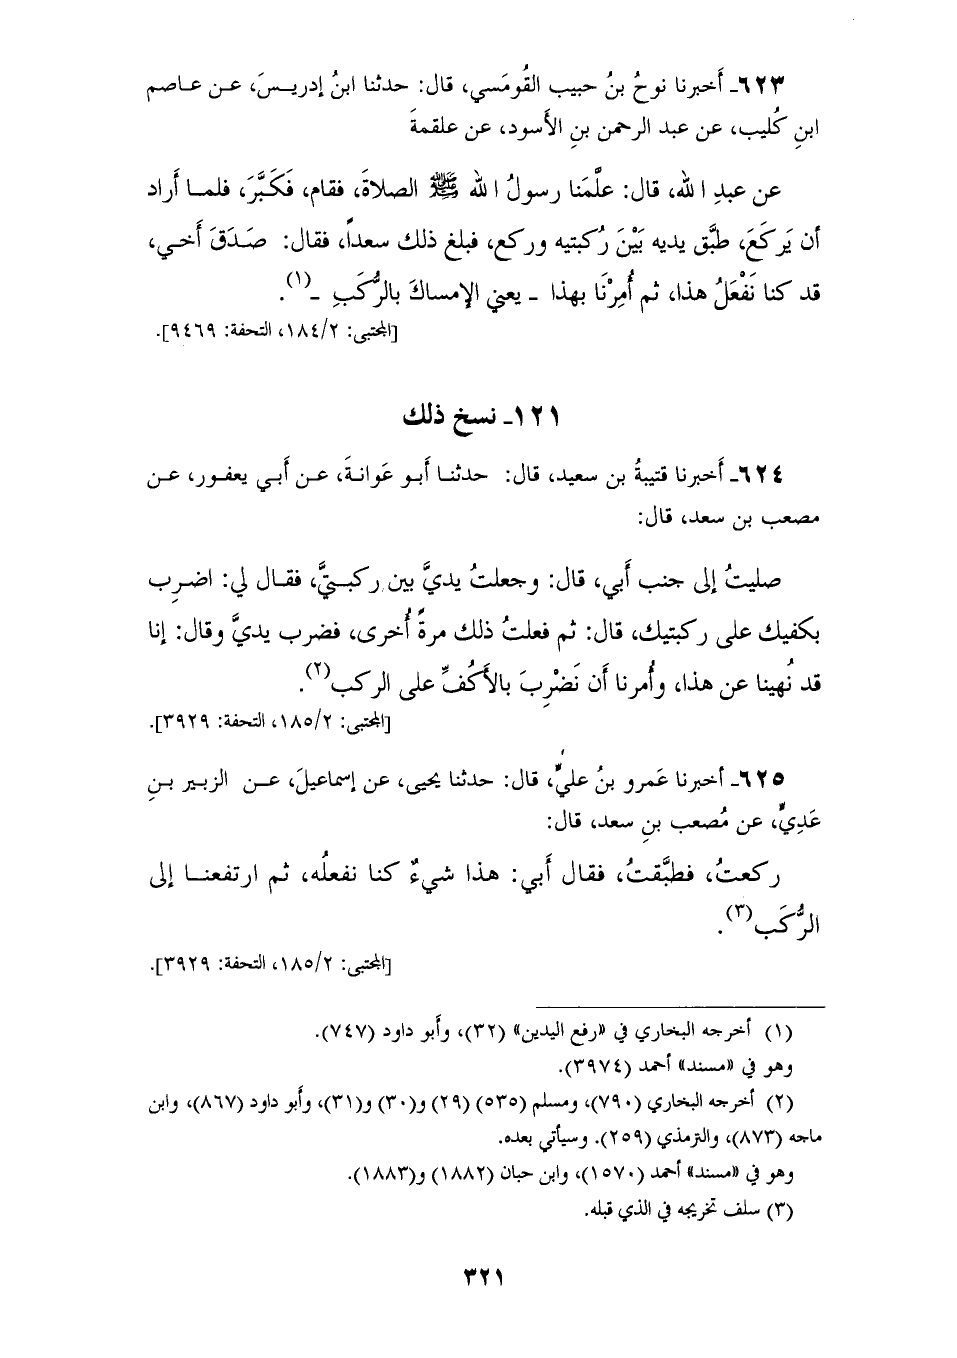 ٦٢٣ـ أَخبرنا نوحُ بنُ حبيب القُومَسي، قال: حدثنا ابنُ إدريـسَ، عـن عـاصم
ابنِ كُليب، عن عبد الرحمن بنِ الأَسود، عن علقمةَ
عن عبدِ الله، قال: علَّمَنا رسولُ الله ﷺ الصلاةَ، فقام، فَكَبَّرَ، فلمـا أَراد
أن يَركَعَ، طبَّق يديه بَيْنَ رُكبتيه وركع، فبلغ ذلك سعداً، فقال: صَدَقَ أَخـي،
قد كنا نَفْعَلُ هذا، ثم أُمِرْنَا بهذا ـ يعني الإمساكَ بالرُّكَبِ ـ(١).
[المجتبى: ١٨٤/٢، التحفة: ٩٤٦٩].
١٢١ـ نسخ ذلك
٦٢٤ـ أَخبرنا قتيبةُ بن سعيد، قال: حدثنـا أَبـو عَوانـةَ، عـن أَبـي يعفـور، عـن
مصعب بن سعد، قال:
صليتُ إلى جنب أَبي، قال: وجعلتُ يديَّ بين ركبـتيَّ، فقـال لي: اضـرِب
بكفيك على ركبتيك، قال: ثم فعلتُ ذلك مرةً أُخرى، فضرب يديَّ وقال: إنا
قد نُهينا عن هذا، وأُمرنا أن نَضْرِبَ بالأَكُفِّ على الركب(٢).
[المجتبى: ١٨٥/٢، التحفة: ٣٩٢٩].
٦٢٥ـ أخبرنا عَمرو بنُ عليٍّ، قال: حدثنا يحيى، عن إسماعيلَ، عـن الزبـير بـنِ
عَدِيٍّ، عن مُصعب بنِ سعد، قال:
ركعتُ، فطبَّقتُ، فقال أَبي: هذا شيءٌ كنا نفعلُه، ثم ارتفعنـا إلى
الرُّكَب(٣).
[المجتبى: ١٨٥/٢، التحفة: ٣٩٢٩].
(١) أخرجه البخاري في «رفع اليدين» (٣٢)، وأَبو داود (٧٤٧).
وهو في «مسند» أحمد (٣٩٧٤).
(٢) أخرجه البخاري (٧٩٠)، ومسلم (٥٣٥) (٢٩) و(٣٠) و(٣١)، وأَبو داود (٨٦٧)، وابن
ماجه (٨٧٣)، والترمذي (٢٥٩). وسيأتي بعده.
وهو في «مسند» أحمد (١٥٧٠)، وابن حبان (١٨٨٢) و(١٨٨٣).
(٣) سلف تخريجه في الذي قبله.
٣٢١